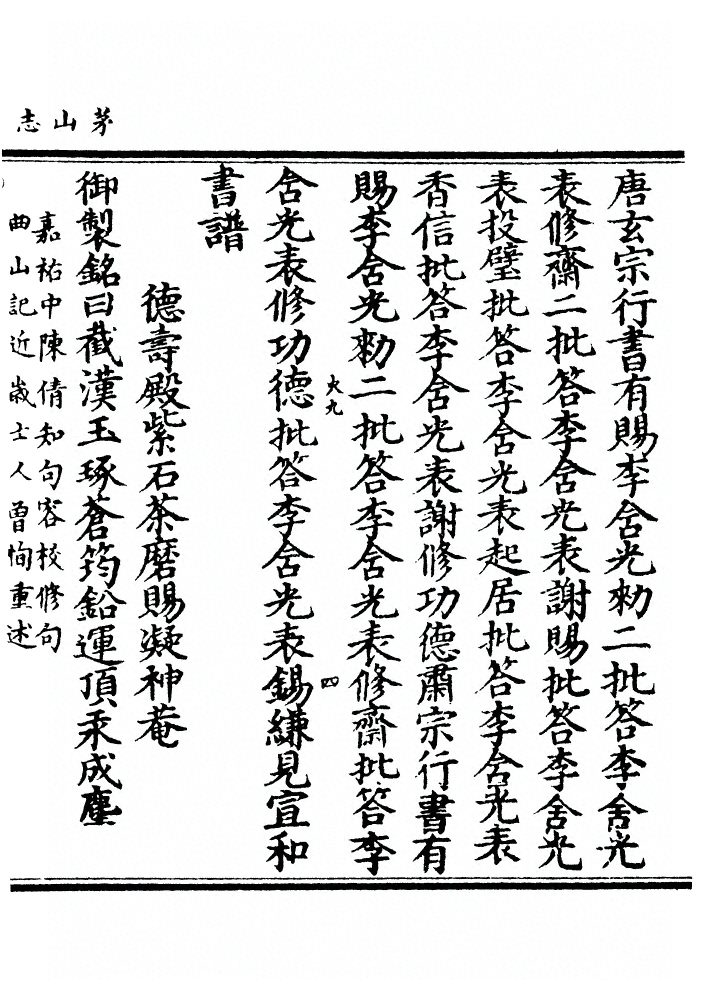 茅山志
唐玄宗行書有賜李含光勑二批答李含光
表修齋二批答李含光表謝賜批答李含光
表投璧批答李含光表起居批答李含光表
香信批答李含光表謝修功德肅宗行書有
賜李含光勑二批答李含光表修齋批答李
火九
四
含光表修功德批答李含光表錫縑見宣和
書譜
德壽殿紫石茶磨賜凝神菴
御製銘曰截漢玉琢蒼筠鉛運頂汞成塵
嘉祐中陳倩知句容校修句
曲山記近歲士人曾恂重述